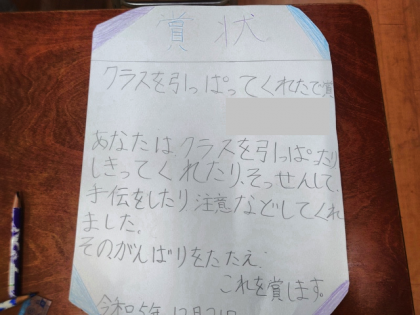 賞状
クラスを引っぱってくれたで賞
あなたは、クラスを引っぱったり
しきってくれたり、そっせんして、
手伝をしたり注意などしてくれ
ました。
そのがんばりをたたえ、
これを賞します。
令和5年12月21日